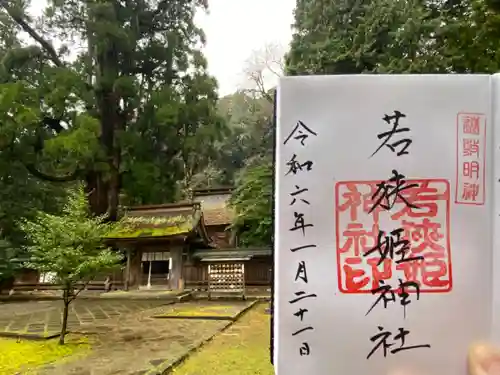 若狭姫神社
令和六年一月二十一日
若狭姫
神社印